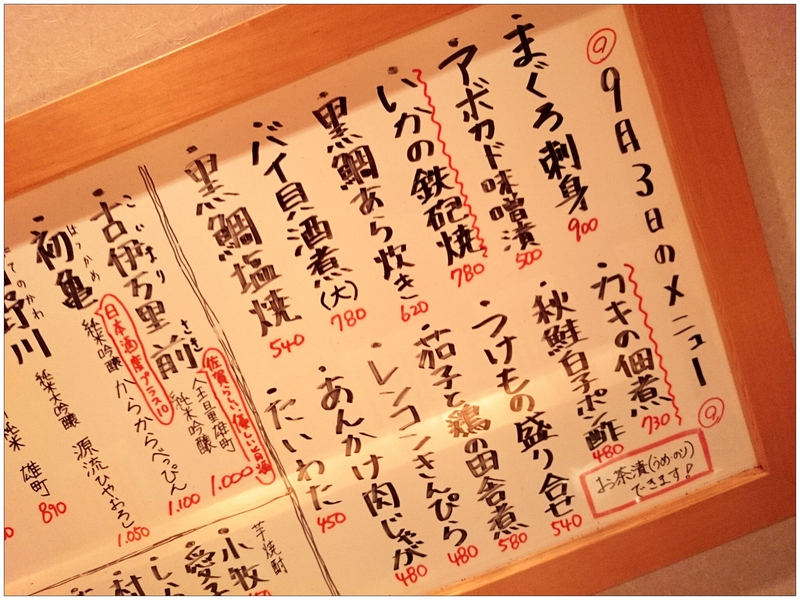 9月3日のメニュー
まぐろ刺身 900
アボカド味噌漬 500
いかの鉄砲焼 780
黒鯛あら炊き 620
バイ貝酒煮(大) 780
黒鯛塩焼 540
カキの佃煮 730
秋鮭白子ポン酢 480
つけもの盛り合せ 540
茄子と鶏の田舎煮 580
レンコンきんぴら 480
あんかけ肉じゃが 480
たいわた 450
お茶漬(うめ・のり)
できます!
古伊万里 前
こいまり さき
純米吟醸
1.000
からからべっぴん 1.100
日本酒度プラス10
初亀
はつかめ
純米吟醸
源流ひやおろし 1.050
野川
てのかわ
純米大吟醸
純米 雄町 890
芋焼酎
小牧
愛子
村